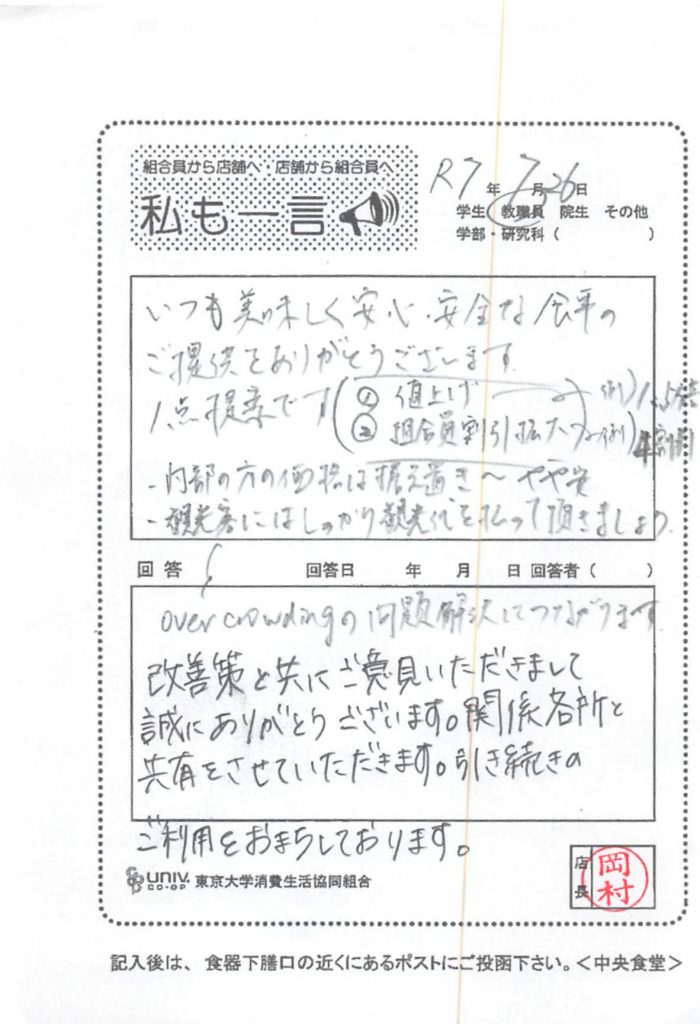 組合員から店舗へ・店舗から組合員へ
私も一言
R7年 7月 26日
学生 教職員 院生 その他
学部・研究科( )
いつも美味しく安心・安全な食事の
ご提供をありがとうございます
1点提案です
① 値上げ 例)1.5倍
② 組合員割引拡大 例)4割引
・内部の方の価格は据え置き〜やや安
・観光客にはしっかり観光代を払って頂きましょう
回答 回答日 年 月 日 回答者( )
overcrowdingの問題解決につながります
改善策と共にご意見いただきまして
誠にありがとうございます。関係各所と
共有をさせていただきます。引き続きの
ご利用をおまちしております。
UNIV. CO-OP 東京大学消費生活協同組合
店長 岡村
記入後は、食器下膳口の近くにあるポストにご投函下さい。<中央食堂>